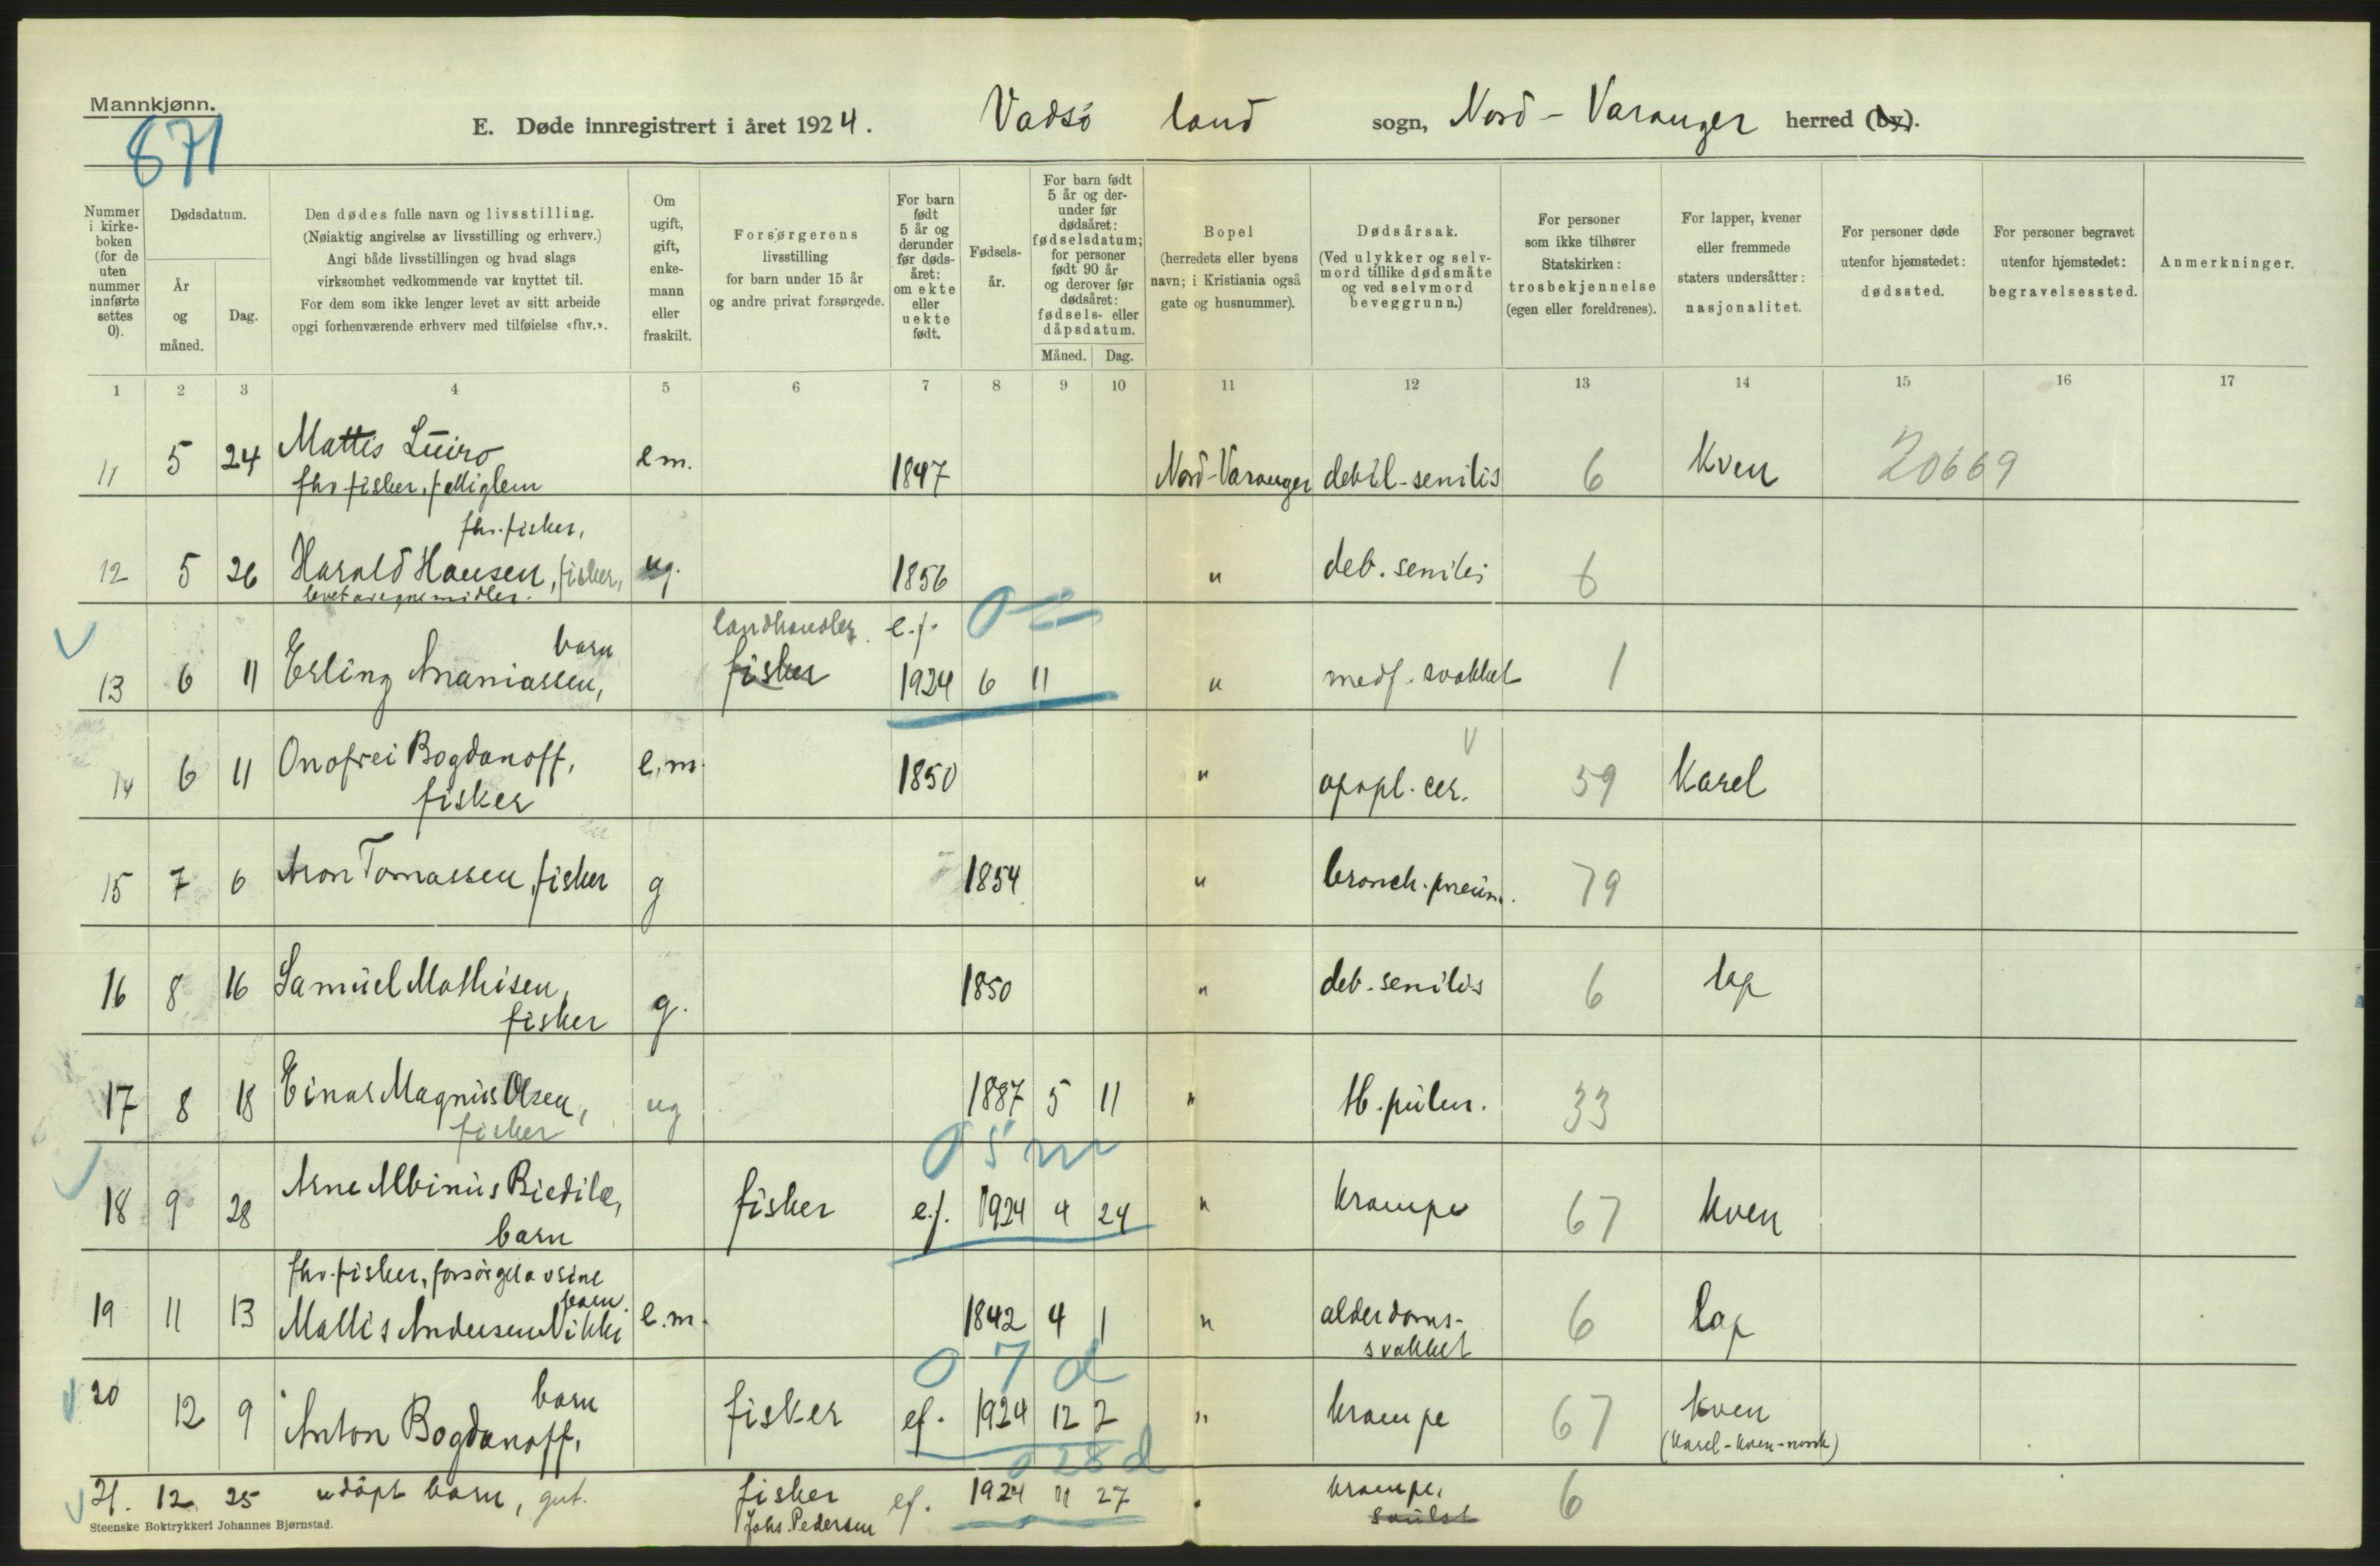 Mannkjønn.
871
E. Døde innregistrert i året 1924. Vadsö land sogn, Nord-Varanger herred (by).
Nummer i kirke-boken (for de uten nummer innførte settes 0).
Dødsdatum.
År og måned.
Dag.
Den dødes fulle navn og livsstilling.
(Nøiaktig angivelse av livsstilling og erhverv.)
Angi både livsstillingen og hvad slags
virksomhet vedkommende var knyttet til.
For dem som ikke lenger levet av sitt arbeide
opgi forhenværende erhverv med tilføielse «fhv.».
Om ugift, gift, enke-mann eller fraskilt.
Forsørgerens
livsstilling
for barn under 15 år
og andre privat forsørgede.
For barn født 5 år og derunder før døds-året: om ekte eller uekte født.
Fødsels-år.
For barn født 5 år og der-under før dødsåret: fødselsdatum; for personer født 90 år og derover før dødsåret: fødsels- eller dåpsdatum.
Måned. Dag.
Bopel
(herredets eller byens
navn; i Kristiania også
gate og husnummer).
Dødsårsak.
(Ved ulykker og selv-
mord tillike dødsmåte
og ved selvmord
beveggrunn.)
For personer
som ikke tilhører
Statskirken:
trosbekjennelse
(egen eller foreldrenes).
For lapper, kvener
eller fremmede
staters undersåtter:
nasjonalitet.
For personer døde
utenfor hjemstedet:
dødssted.
For personer begravet
utenfor hjemstedet:
begravelsessted.
Anmerkninger.
1 2 3 4 5 6 7 8 9 10 11 12 13 14 15 16 17
11 5 24 Mattis Luiro em. 1847 Nord-Varanger debil-senilis 6 Kven 20669
fhv fisker,
fhv. fisker,
12 5 26 Harald Hansen, fisker, ug. 1856 " deb. senilis 6
levet av egne midler.
landhandler. e.f.
barn
13 6 11 Erling Ananiassen, fisker 1924 6 11 " medf. svakhet 1
14 6 11 Onofrei Bogdanoff, e.m. 1850 " apopl. cer. 59 Karel
fisker
15 7 6 Aron Tomassen, fisker g 1854 " bronch. pneum. 79
16 8 16 Samuel Mathisen, g. 1850 " deb. senilis 6 lap
fisker
17 8 18 Einar Magnus Olsen, ug 1887 5 11 " tb. pulm. 33
fisker
0 5 m
18 9 28 Arne Albinus Biedilæ, fisker e.f. 1924 4 24 " krampe 67 kven
barn
fhv. fisker, forsörget av sine
barn.
19 11 13 Mattis Andersen Nikki e.m. 1842 4 1 " alderdoms-
svakhet 6 lap
0 7 d
barn
20 12 9 Anton Bogdanoff, fisker ef. 1924 12 2 " krampe 67 kven
(karel-kven-norsk)
0 28 d
21. 12 25 udöpt barn, gut. fisker ef. 1924 11 27 " krampe. 6
Johs. Pedersen
Steenske Boktrykkeri Johannes Bjørnstad.